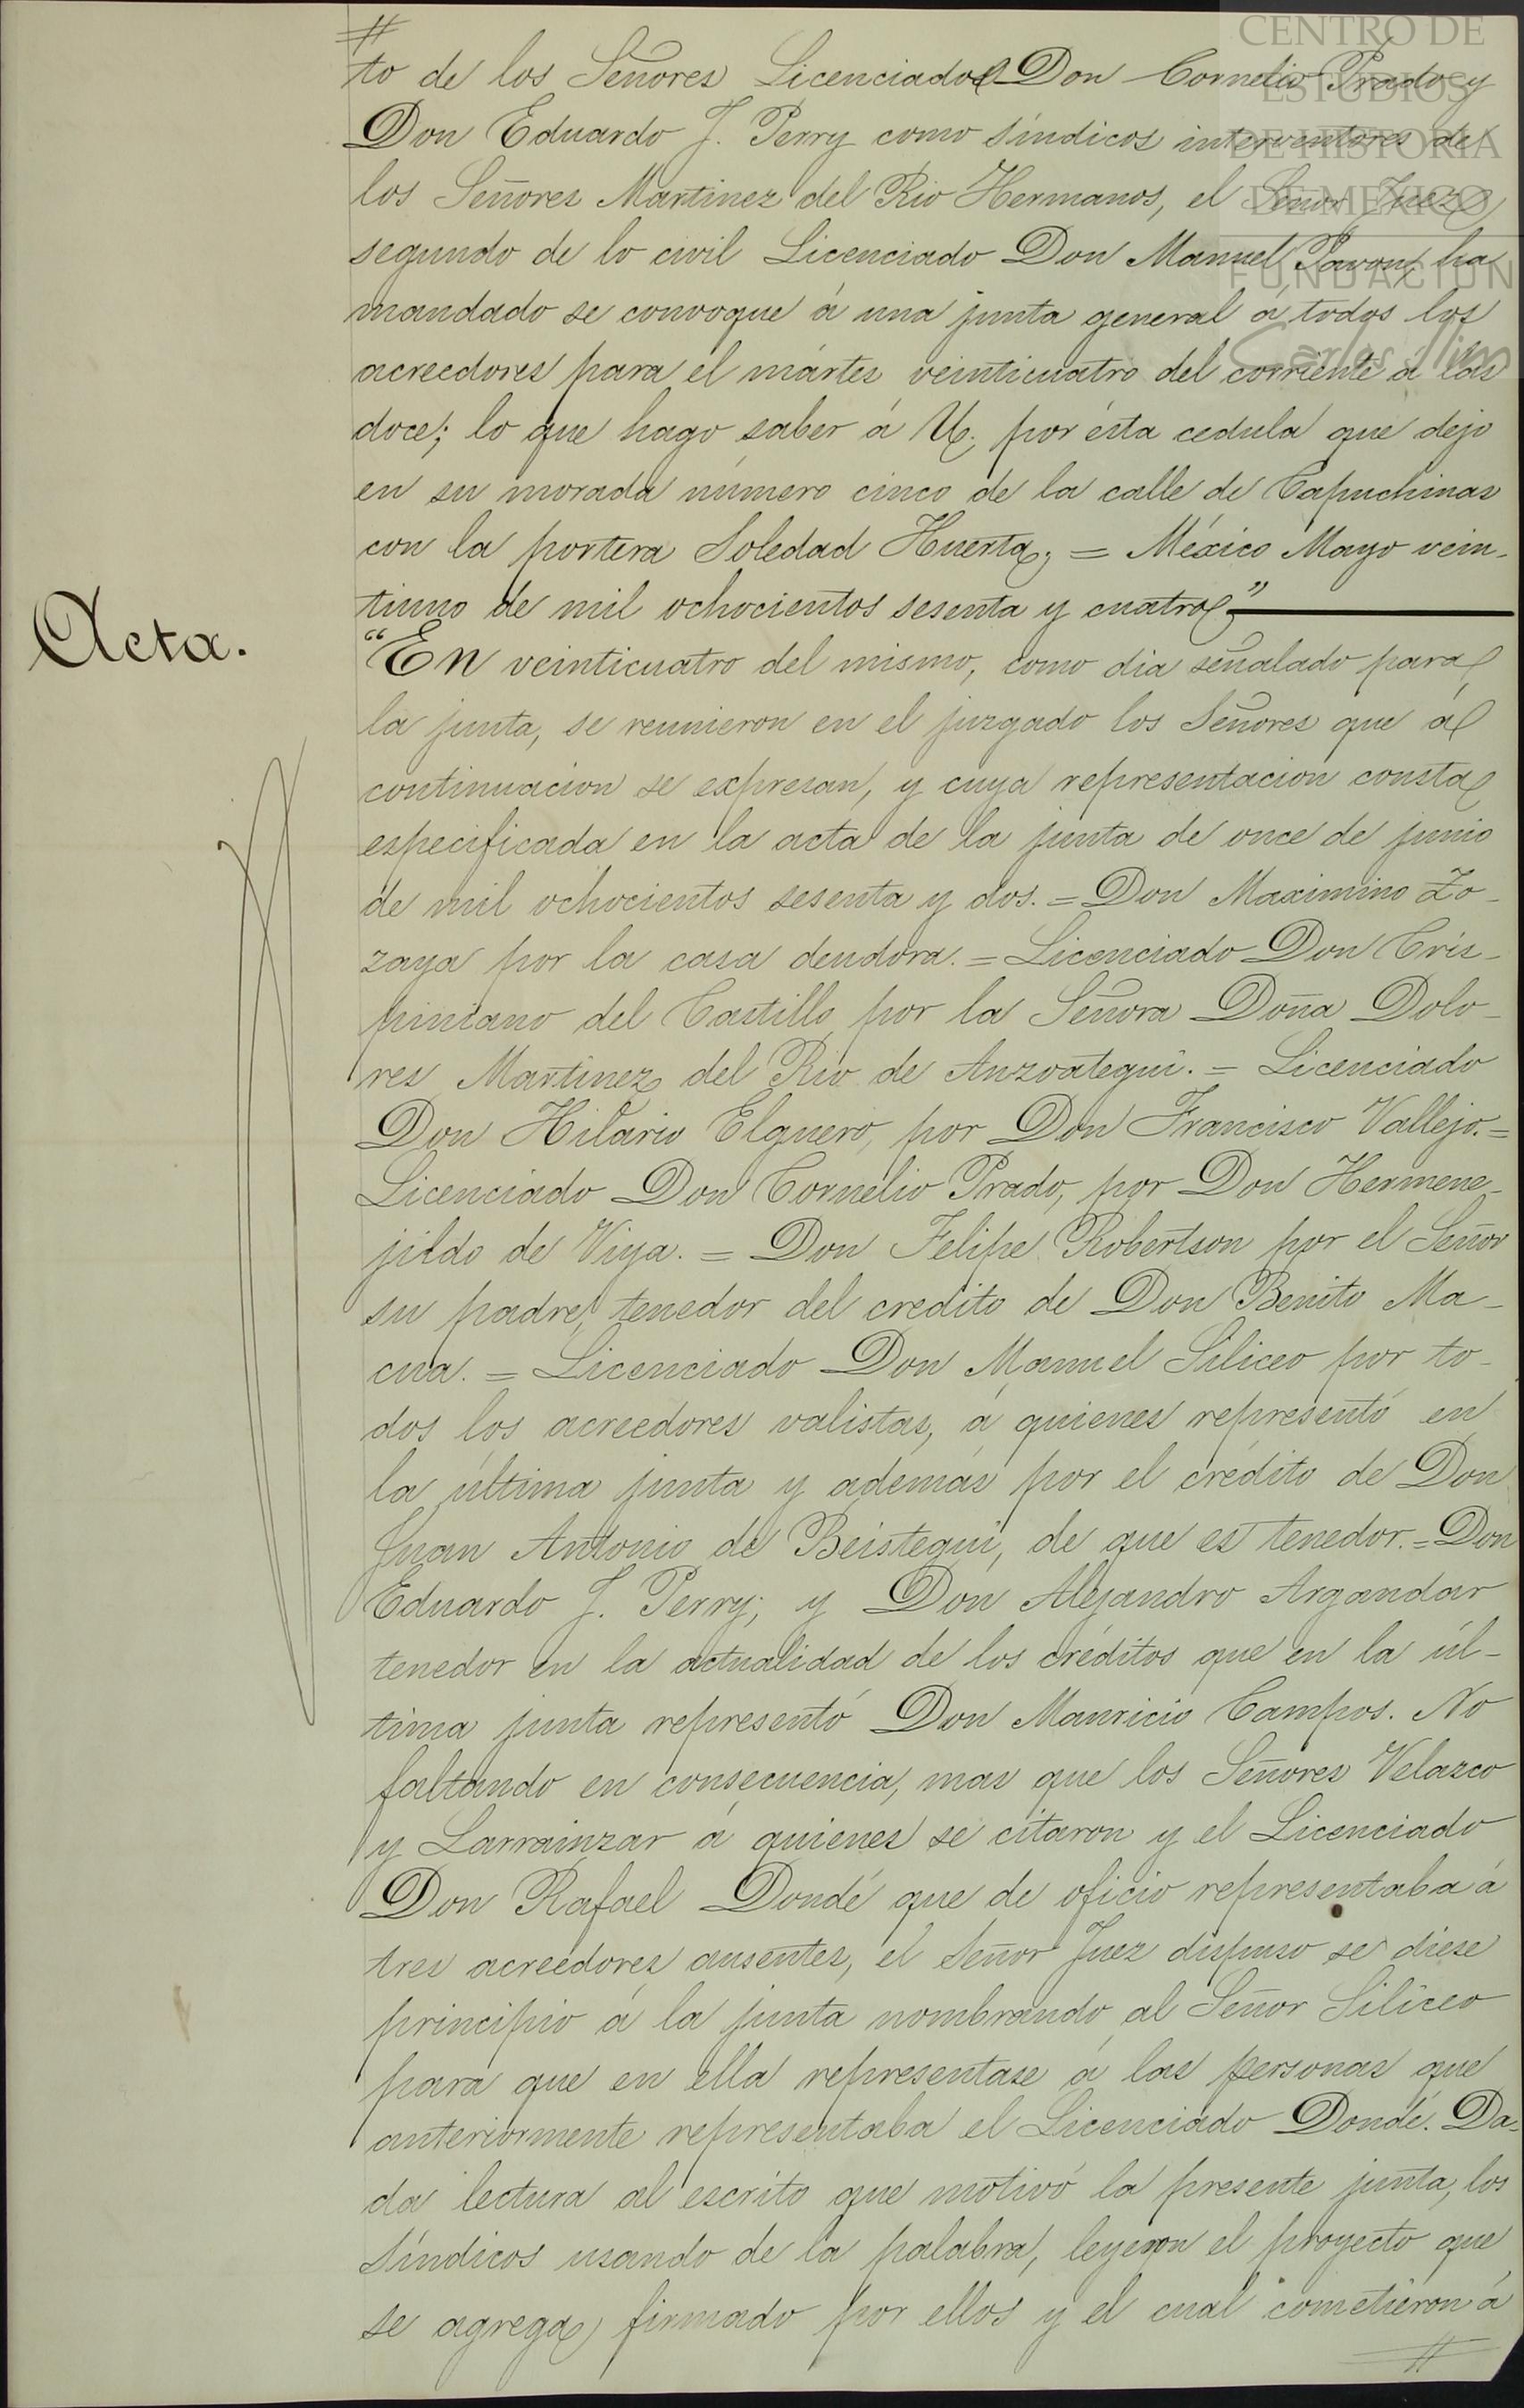 to de los Señores Licenciados Don Cornelio Prado y
Don Eduardo J. Perry como síndicos interventores de
los Señores Martinez del Rio Hermanos, el Señor Juez
segundo de lo civil Licenciado Don Manuel Pavon, ha
mandado se convoque á una junta general á todos los
acreedores para el mártes veinticuatro del corriente á las
doce; lo que hago saber á U. por ésta cedula que dejo
en su morada número cinco de la calle de Capuchinas
con la portera Soledad Huerta; = México Mayo vein-
tiuno de mil ochocientos sesenta y cuatro."
Acta.
"En veinticuatro del mismo, como dia señalado para
la junta, se reunieron en el juzgado los Señores que á
continuacion se expresan, y cuya representacion consta
especificada en la acta de la junta de once de junio
de mil ochocientos sesenta y dos. = Don Maximino Zo-
zaya por la casa deudora. = Licenciado Don Cris-
piniano del Castillo por la Señora Doña Dolo-
res Martinez del Rio de Anzoategui. = Licenciado
Don Hilario Elguero, por Don Francisco Vallejo. =
Licenciado Don Cornelio Prado, por Don Hermene-
jildo de Viya. = Don Felipe Robertson por el Señor
su padre, tenedor del credito de Don Benito Ma-
cua. = Licenciado Don Manuel Siliceo por to-
dos los acreedores valistas, á quienes representó en
la última junta y además por el crédito de Don
Juan Antonio de Beistegui, de que es tenedor. = Don
Eduardo J. Perry; y Don Alejandro Argandar
tenedor en la actualidad de los créditos que en la úl-
tima junta representó Don Mauricio Campos. No
faltando en consecuencia, mas que los Señores Velazco
y Larrainzar á quienes se citaron y el Licenciado
Don Rafael Dondé que de oficio representaba á
tres acreedores ausentes, el Señor Juez dispuso se diese
principio á la junta nombrando al Señor Siliceo
para que en ella representase á las personas que
anteriormente representaba el Licenciado Dondé. Da-
da lectura al escrito que motivó la presente junta, los
Síndicos usando de la palabra, leyeron el proyecto que
se agrega firmado por ellos y el cual cometieron á
CENTRO DE
ESTUDIOS
DE HISTORIA
DE MÉXICO
FUNDACIÓN
Carlos Slim